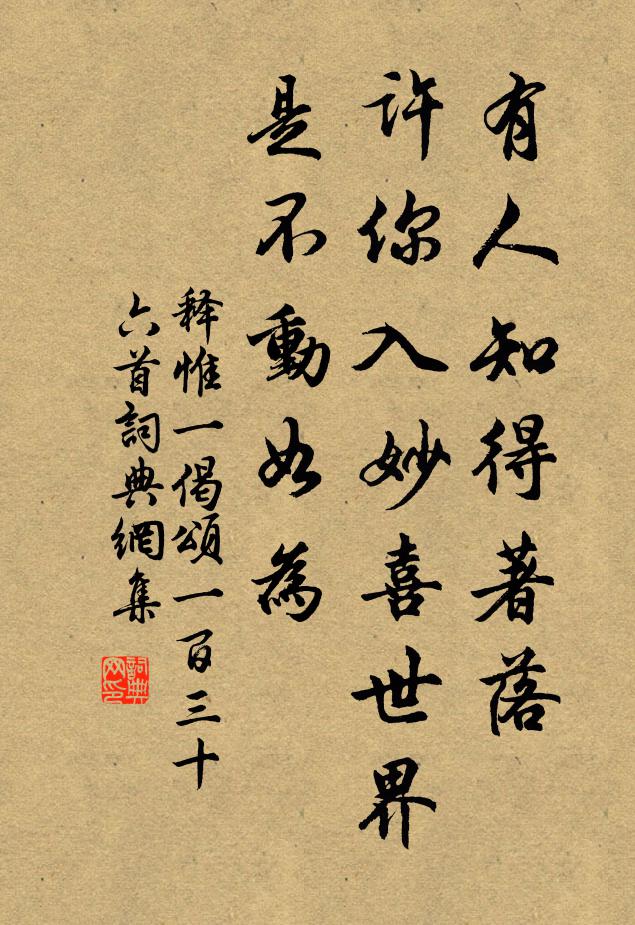 有人知得著落
许你入妙喜世界
是不動如為
释惟一偈頌一百三十
六首詞典網集
詞典網印